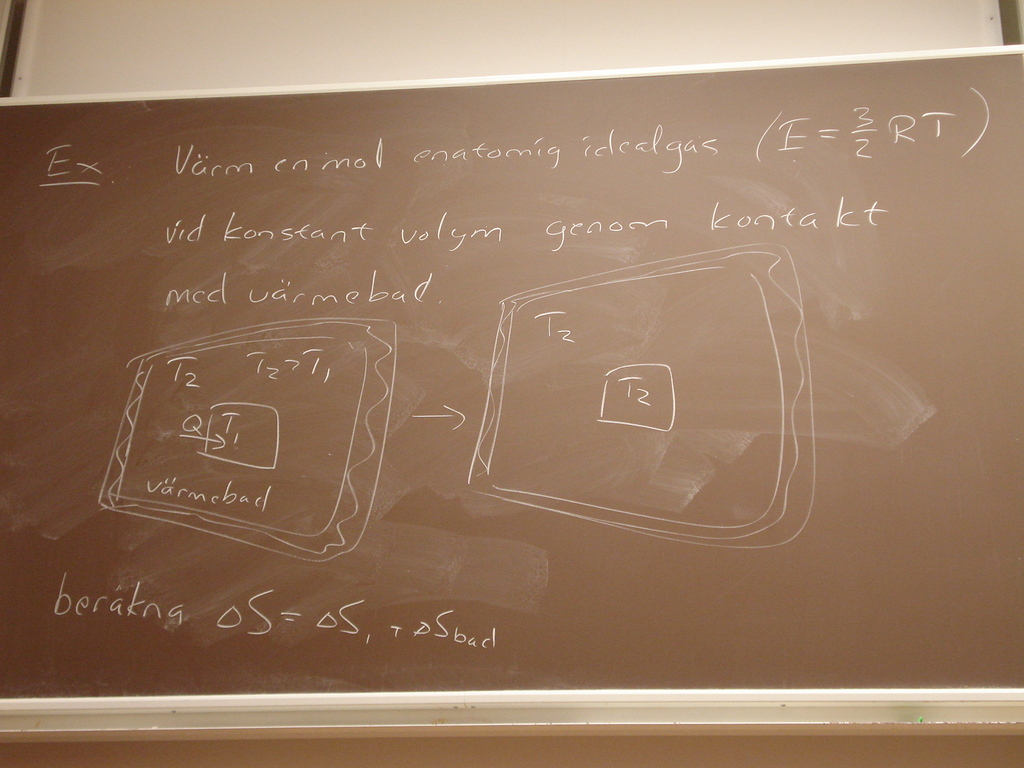 Ex. Värm en mol enatomig idealgas (E = 3/2 RT)
vid konstant volym genom kontakt
med värmebad.
T₂ T₂>T₁
Q T₁
värmebad
→
T₂
T₂
beräkna ΔS = ΔS₁ + ΔS_bad